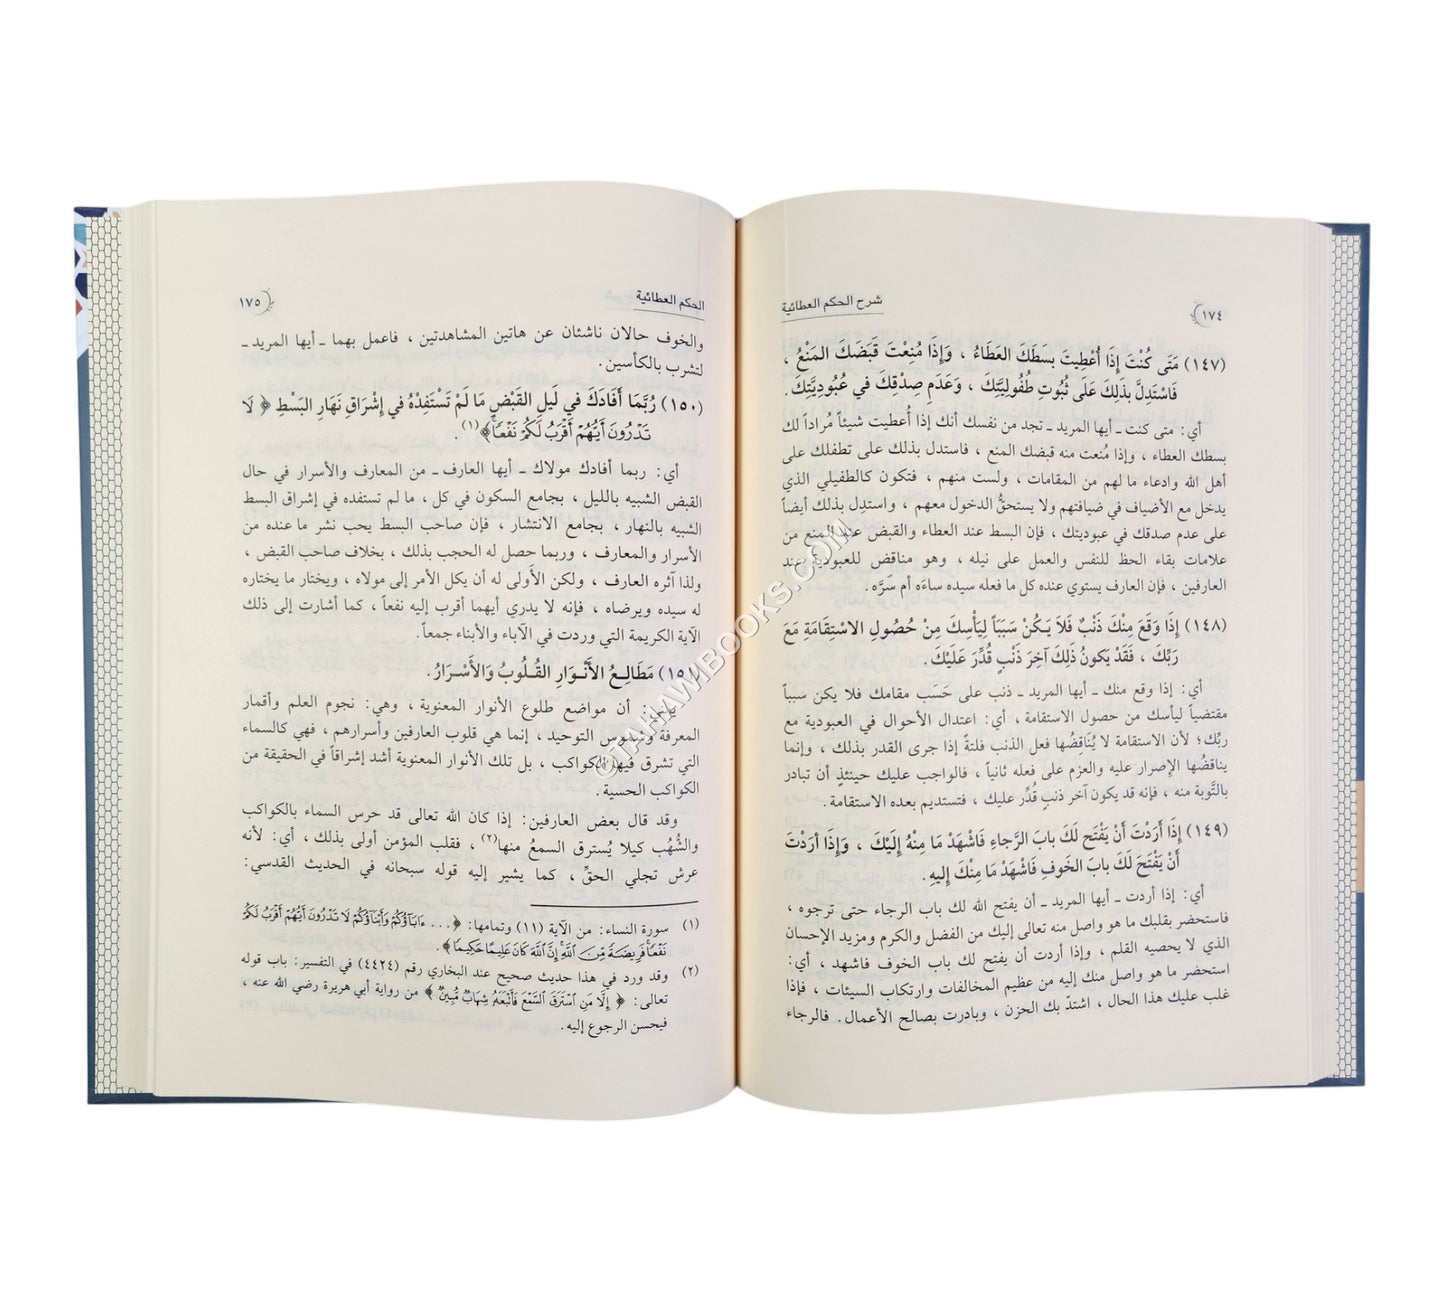 ١٧٤
شرح الحكم العطائية
(١٤٧) مَتَى كُنْتَ إِذَا أُعْطِيتَ بسَطَكَ العَطَاءُ ، وَإِذَا مُنِعْتَ قَبَضَكَ المَنْعُ ،
فَاسْتَدِلَّ بذَلِكَ عَلَى ثُبُوتِ طُفُولِيَّتِكَ ، وَعَدَمِ صِدْقِكَ في عُبُودِيَّتِكَ .
أي: متى كنت ـ أيها المريد ـ تجد من نفسك أنك إذا أُعطيت شيئاً مُراداً لك
بسطك العطاء ، وإذا مُنعت منه قبضك المنع ، فاستدل بذلك على تطفلك على
أهل الله وادعاء ما لهم من المقامات ، ولست منهم ، فتكون كالطفيلي الذي
يدخل مع الأضياف في ضيافتهم ولا يستحقُّ الدخول معهم ، واستدِل بذلك أيضاً
على عدم صدقك في عبوديتك ، فإن البسط عند العطاء والقبض عند المنع من
علامات بقاء الحظ للنفس والعمل على نيله ، وهو مناقض للعبودية عند
العارفين ، فإن العارف يستوي عنده كل ما فعله سيده ساءَه أم سَرَّه .
(١٤٨) إِذَا وَقَعَ مِنْكَ ذَنْبٌ فَلاَ يَـكُنْ سَبَبَاً لِيَأْسِكَ مِنْ حُصُولِ الاسْتِقَامَةِ مَعَ
رَبِّكَ ، فَقَدْ يَكونُ ذَلِكَ آخِرَ ذَنْبٍ قُدِّرَ عَلَيْكَ .
أي: إذا وقع منك ـ أيها المريد ـ ذنب على حَسَب مقامك فلا يكن سبباً
مقتضياً ليأسك من حصول الاستقامة ، أي: اعتدال الأحوال في العبودية مع
ربِّك؛ لأن الاستقامة لا يُنَاقضُها فعل الذنب فلتةً إذا جرى القدر بذلك ، وإنما
يناقضُها الإصرار عليه والعزم على فعله ثانياً ، فالواجب عليك حينئذٍ أن تبادر
بالتَّوبة منه ، فإنه قد يكون آخر ذنبٍ قُدِّر عليك ، فتستديم بعده الاستقامة .
(١٤٩) إِذَا أَرَدْتَ أَنْ يَفْتَح لَكَ بابَ الرَّجاءِ فَاشْهَدْ مَا مِنْهُ إِلَيْكَ ، وَإِذَا أرَدْتَ
أَنْ يَفْتَحَ لَكَ بابَ الخَوفِ فَاشْهَدْ مَا مِنْكَ إلَيهِ .
أي: إذا أردت ـ أيها المريد ـ أن يفتح الله لك باب الرجاء حتى ترجوه ،
فاستحضر بقلبك ما هو واصل منه تعالى إليك من الفضل والكرم ومزيد الإحسان
الذي لا يحصيه القلم ، وإذا أردت أن يفتح لك باب الخوف فاشهد ، أي:
استحضر ما هو واصل منك إليه من عظيم المخالفات وارتكاب السيئات ، فإذا
غلب عليك هذا الحال ، اشتدّ بك الحزن ، وبادرت بصالح الأعمال . فالرجاء
الحكم العطائية
١٧٥
والخوف حالان ناشئان عن هاتين المشاهدتين ، فاعمل بهما ـ أيها المريد ـ
لتشرب بالكأسين .
(١٥٠) رُبَّمَا أَفَادَكَ في لَيلِ القَبْضِ مَا لَمْ تَسْتَفِدْهُ في إِشْرَاقِ نَهَارِ البَسْطِ ﴿ لَا
تَدْرُونَ أَيُّهُمْ أَقْرَبُ لَكُمْ نَفْعًا﴾(١) .
أي: ربما أفادك مولاك ـ أيها العارف ـ من المعارف والأسرار في حال
القبض الشبيه بالليل ، بجامع السكون في كل ، ما لم تستفده في إشراق البسط
الشبيه بالنهار ، بجامع الانتشار ، فإن صاحب البسط يحب نشر ما عنده من
الأسرار والمعارف ، وربما حصل له الحجب بذلك ، بخلاف صاحب القبض ،
ولذا آثره العارف ، ولكن الأَولى له أن يكل الأمر إلى مولاه ، ويختار ما يختاره
له سيده ويرضاه ، فإنه لا يدري أيهما أقرب إليه نفعاً ، كما أشارت إلى ذلك
الآية الكريمة التي وردت في الآباء والأبناء جمعاً .
(١٥١) مَطَالِـعُ الأَنْـوَارِ القُـلُوبُ وَالأَسْـرَارُ .
أن مواضع طلوع الأنوار المعنوية ، وهي: نجوم العلم وأقمار
المعرفة وشموس التوحيد ، إنما هي قلوب العارفين وأسرارهم ، فهي كالسماء
التي تشرق فيها الكواكب ، بل تلك الأنوار المعنوية أشد إشراقاً في الحقيقة من
الكواكب الحسية .
وقد قال بعض العارفين: إذا كان الله تعالى قد حرس السماء بالكواكب
والشُّهُب كيلا يُسترق السمعُ منها(٢) ، فقلب المؤمن أولى بذلك ، أي: لأنه
عرش تجلي الحقِّ ، كما يشير إليه قوله سبحانه في الحديث القدسي:
(١) سورة النساء: من الآية (١١) وتمامها: ﴿ . . . ءَابَآؤُكُمْ وَأَبْنَآؤُكُمْ لَا تَدْرُونَ أَيُّهُمْ أَقْرَبُ لَكُمْ
نَفْعًا فَرِيضَةً مِّنَ اللَّهِ إِنَّ اللَّهَ كَانَ عَلِيمًا حَكِيمًا ﴾ .
(٢) وقد ورد في هذا حديث صحيح عند البخاري رقم (٤٤٢٤) في التفسير: باب قوله
تعالى: ﴿ إِلَّا مَنِ اسْتَرَقَ السَّمْعَ فَأَتْبَعَهُ شِهَابٌ مُّبِينٌ ﴾ من رواية أبي هريرة رضي الله عنه ،
فيحسن الرجوع إليه .
©TAHAWIBOOKS.COM